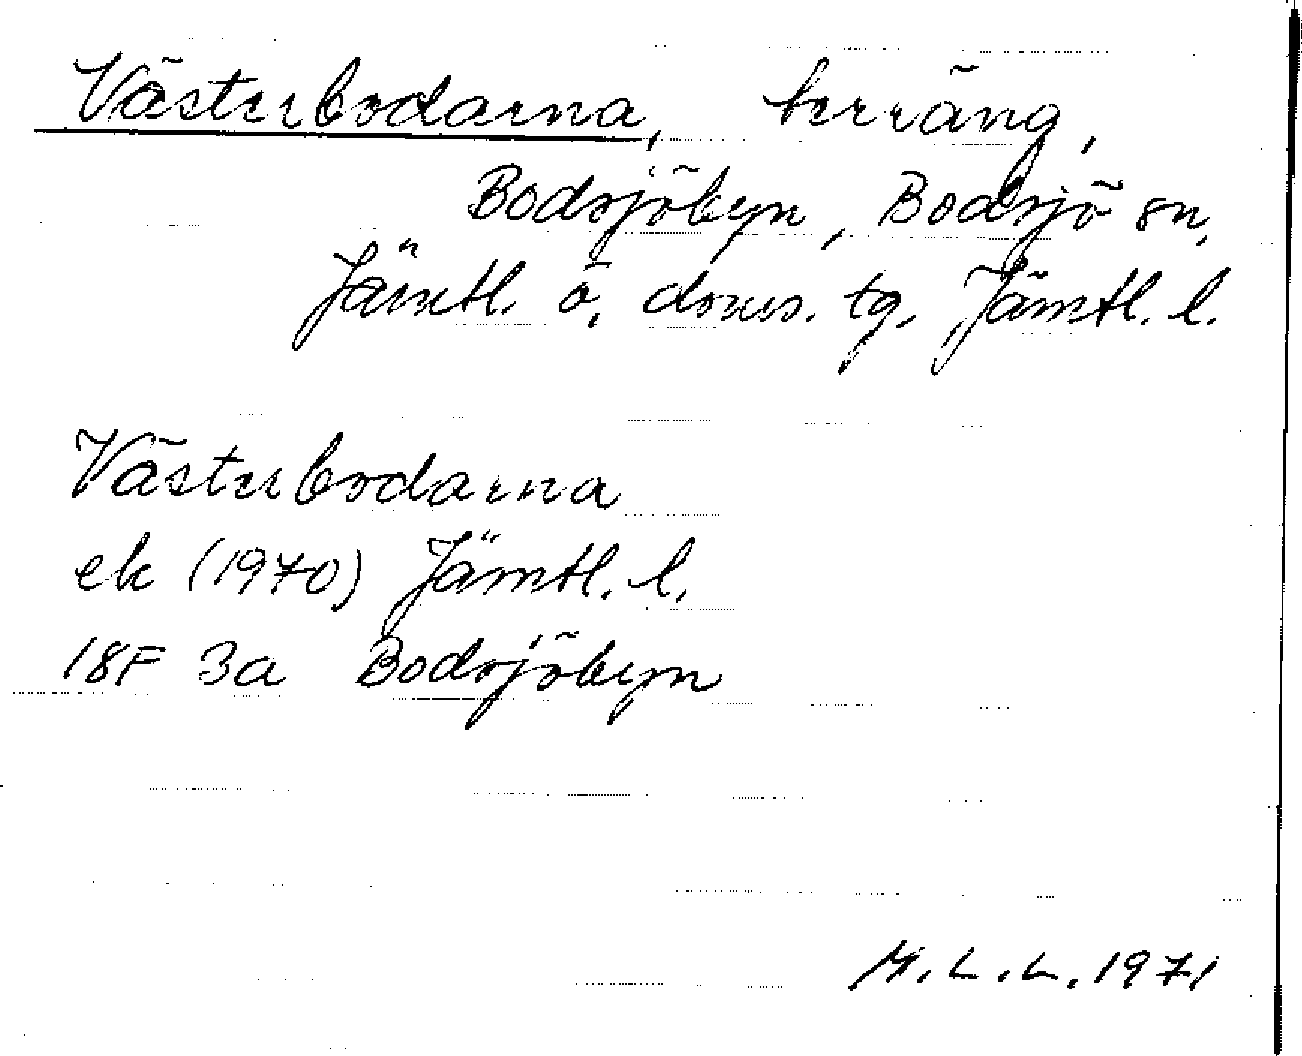 Västerbodarna, terräng,
Bodsjöbyn, Bodsjö sn,
Jämtl. ö. doms. tg, Jämtl. l.
Västerbodarna
ek (1970) Jämtl. l.
18F 3a Bodsjöbyn
M.L.L. 1971